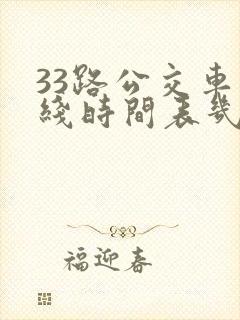 33路公交車
綫時間表幾
福迎春